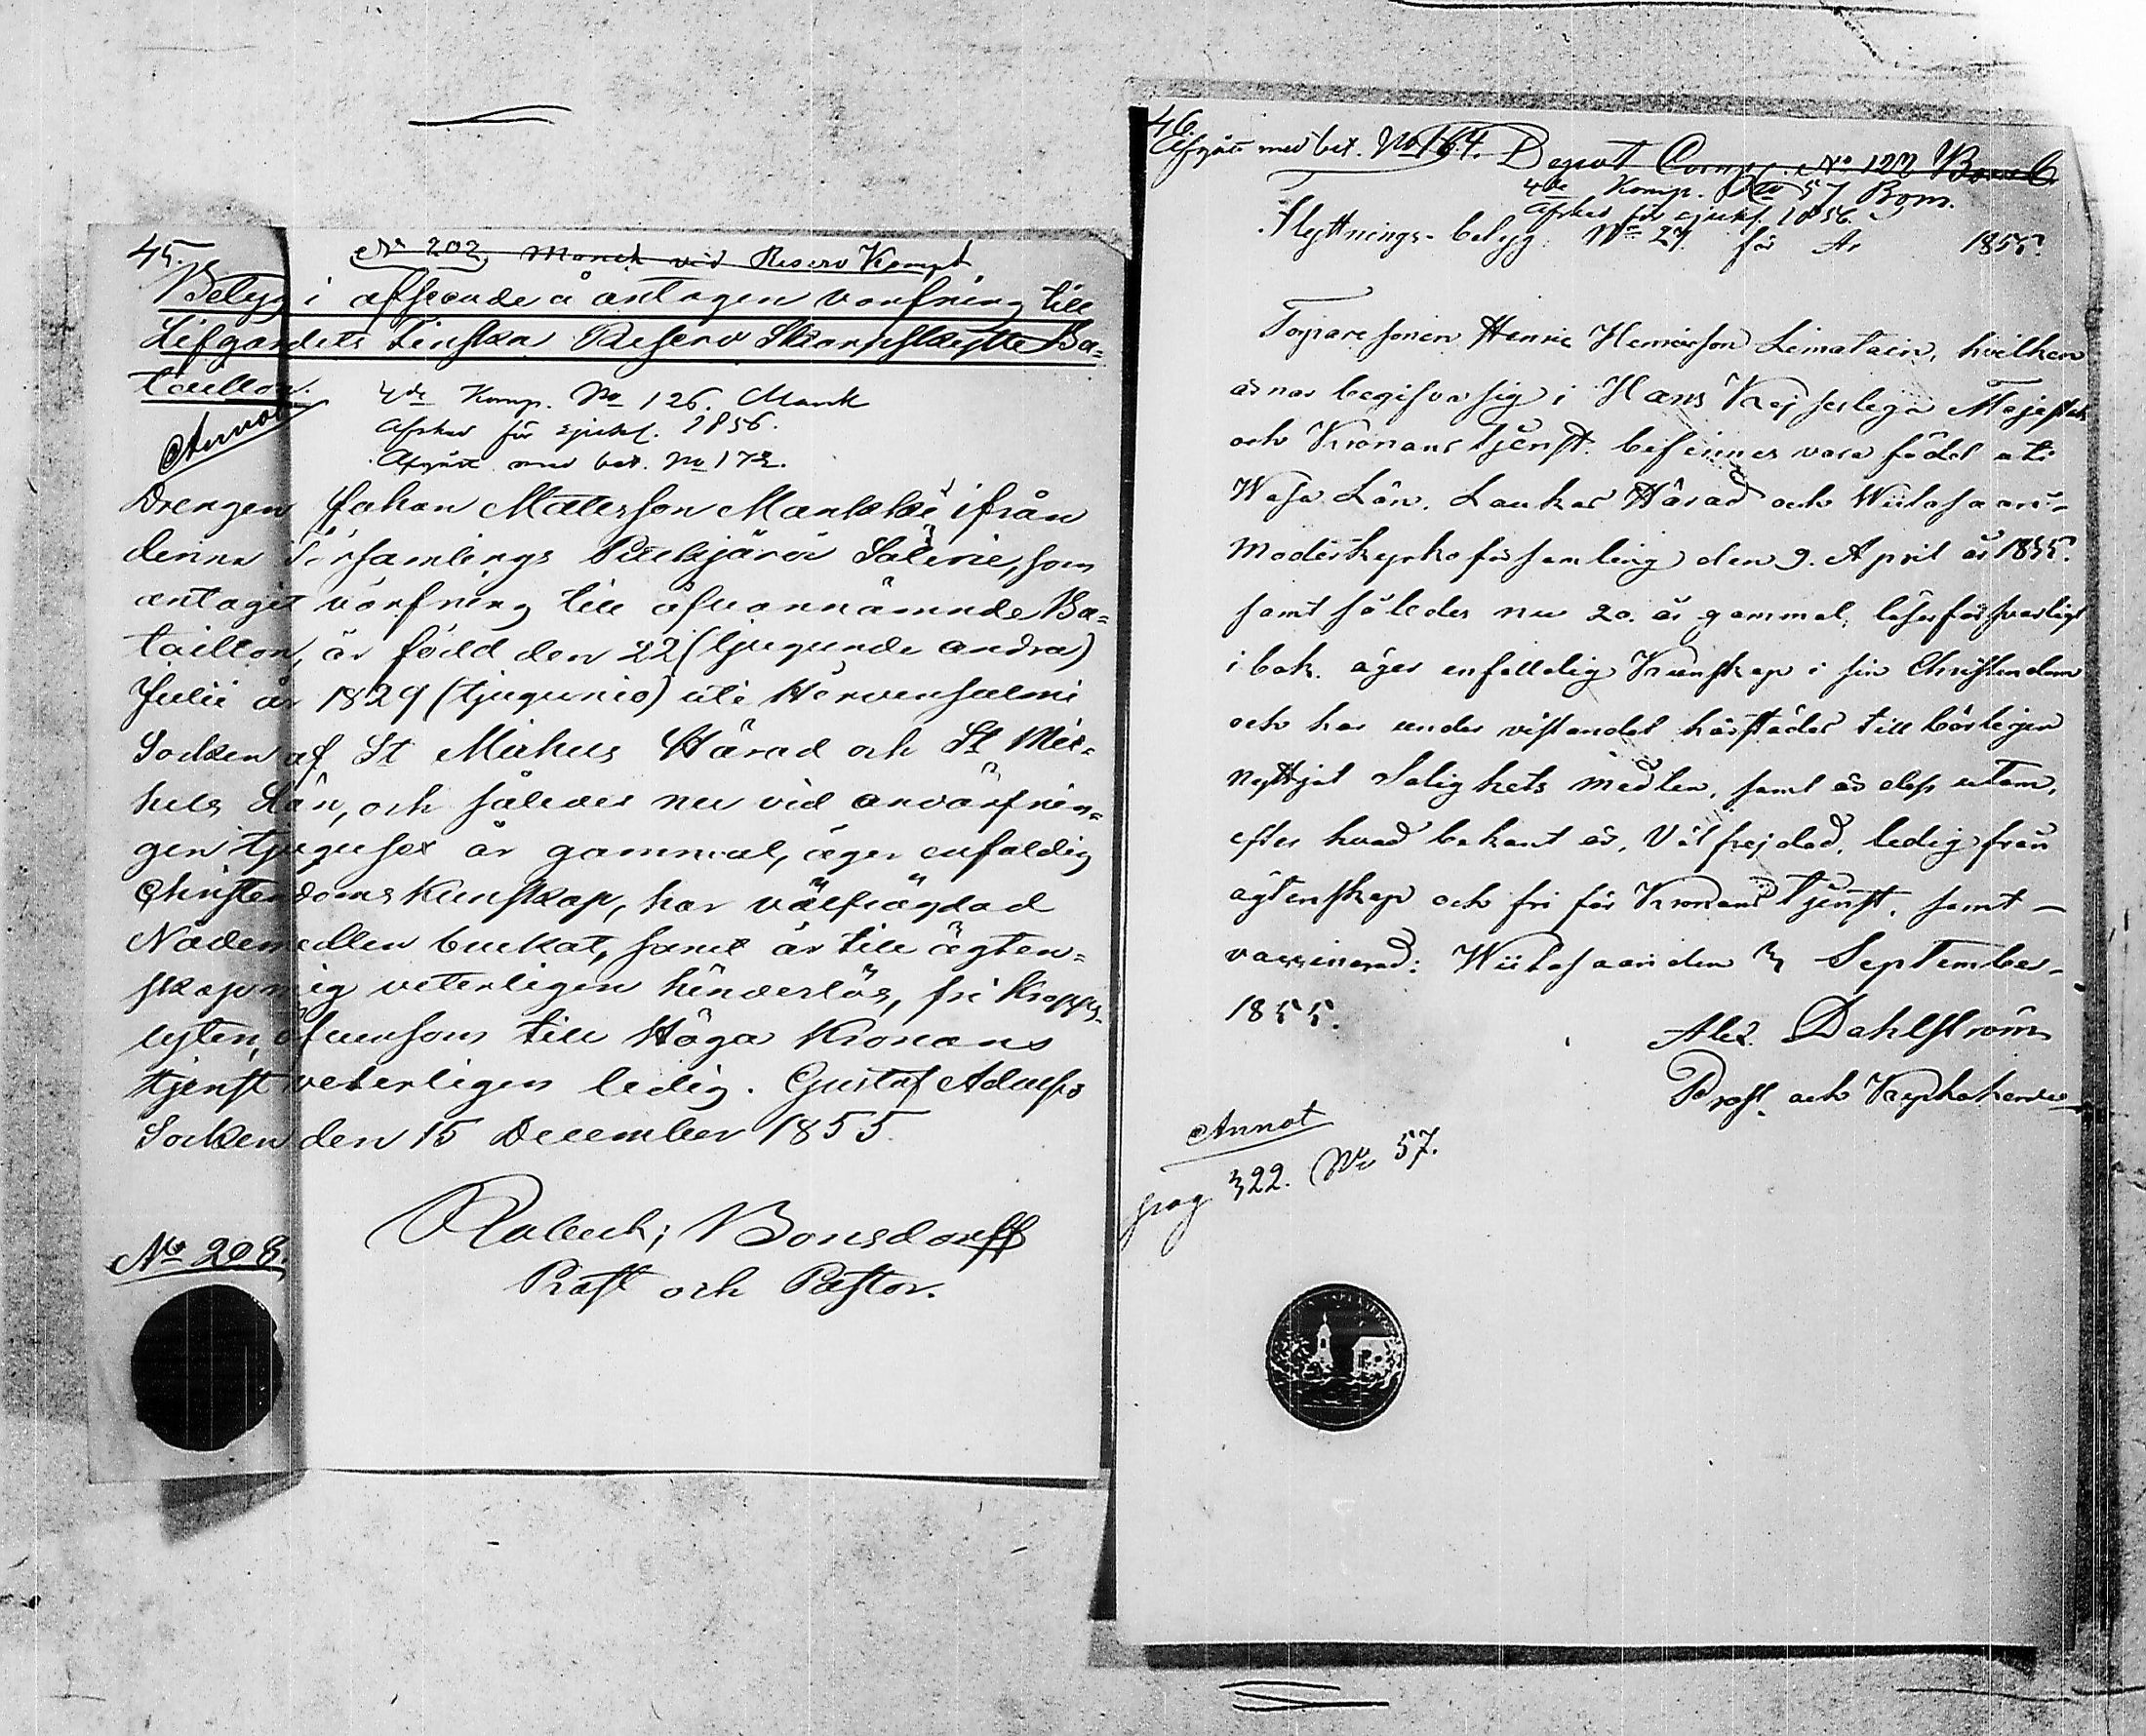 45.
No 202, Manck vid Reserv Kompt
Belyg i afseende å antagen värfning till
Lifgardets Finska Reserv Skarpskytte Ba=
taillon.
Annot
4de Komp. No 126. Mank
Afsked för sjukl. 1856.
Afgått med bet. No 172.
Drengen Johan Matesson Mankki ifrån
denna Församlings
antaget värfning till ofvannämnde Ba=
taillon, är född den 22 (tjugunde andra)
Julii år 1829 (tjugunio) uti Hirvensalmi
Socken af St Mickels Härad och St Mic=
hels Län, och således nu vid anvärfnin=
gen tjugusex år gammal, äger enfaldig
Christendoms Kunskap, har välfrägdad
Nådemedlen bruckat, samt är till ägten=
skap mig veterligen hinderlös, fri kropps
lyten, äfvensom till Höga Kronans
tjenst veterligen ledig. Gustaf Adolfs
Socken den 15 December 1855.
Bonsdorff
Prost och Pastor.
No 208.
46.
Afgått med bet. No 164. Depot Comp. No 122
4de Komp. No 57 Bom.
Afsked för sjukl. 1856.
Flyttnings-belyg: No 27. för År 1855.
Torparesonen Henric Henricsson Limatain, hvilken
ärnar begifva sig i Hans Kejserliga Majestäts
och Kronans tjenst, befinnes vara född uti
Wasa Län, Laukas Härad och Wiitasaari
Moderkyrkoförsamling den 9. April år 1835.
samt således nu 20. år gammal, läser försvarligt
i bok, äger enfaldig Kunskap i sin Christendom
och har under vistandet härstädes tillbörligen
nyttjat Salighets medlen, samt är dess utom,
efter hvad bekant är, Välfrejdad, ledig från
ägtenskap och fri för Kronans tjenst, samt
vaccinerad: Wiitasaari den 3 September
1855.
Alex. Dahlström
Prost och Kyrkoherde
Annot
pag 322. No 57.